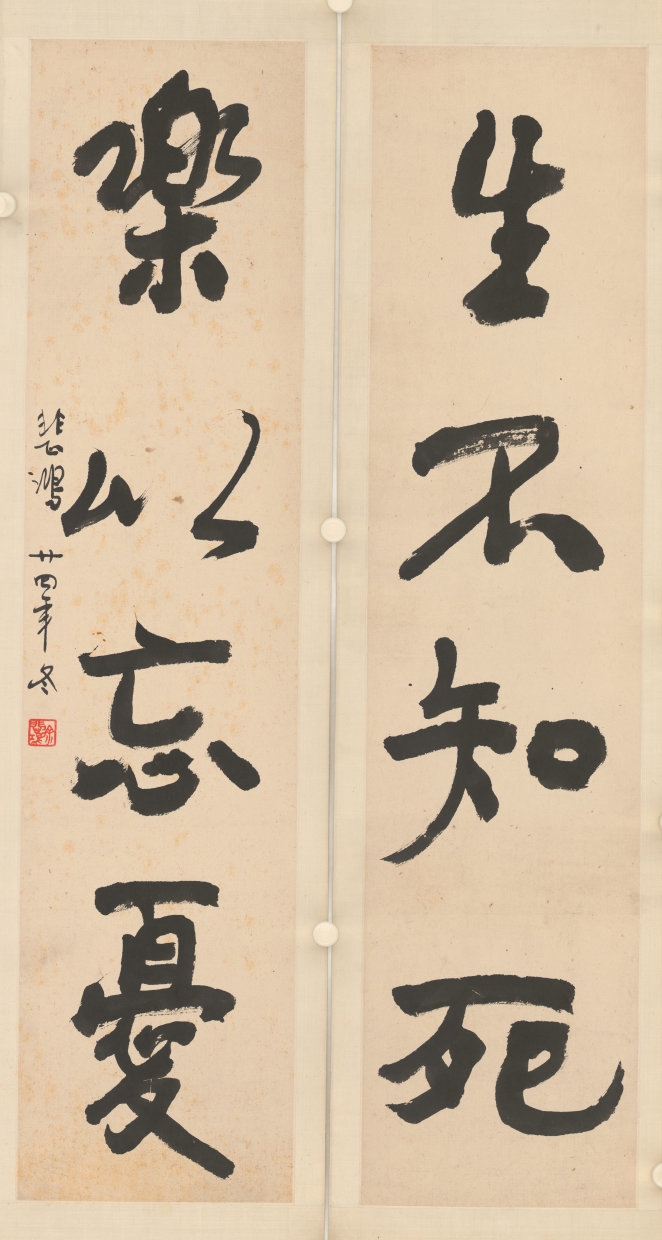 生不知死
樂以忘憂
悲鴻 廿四年冬